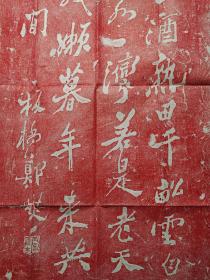 酒熟田半畝雲白
一灣若是老天
懶暮年來共
間
板橋鄭燮